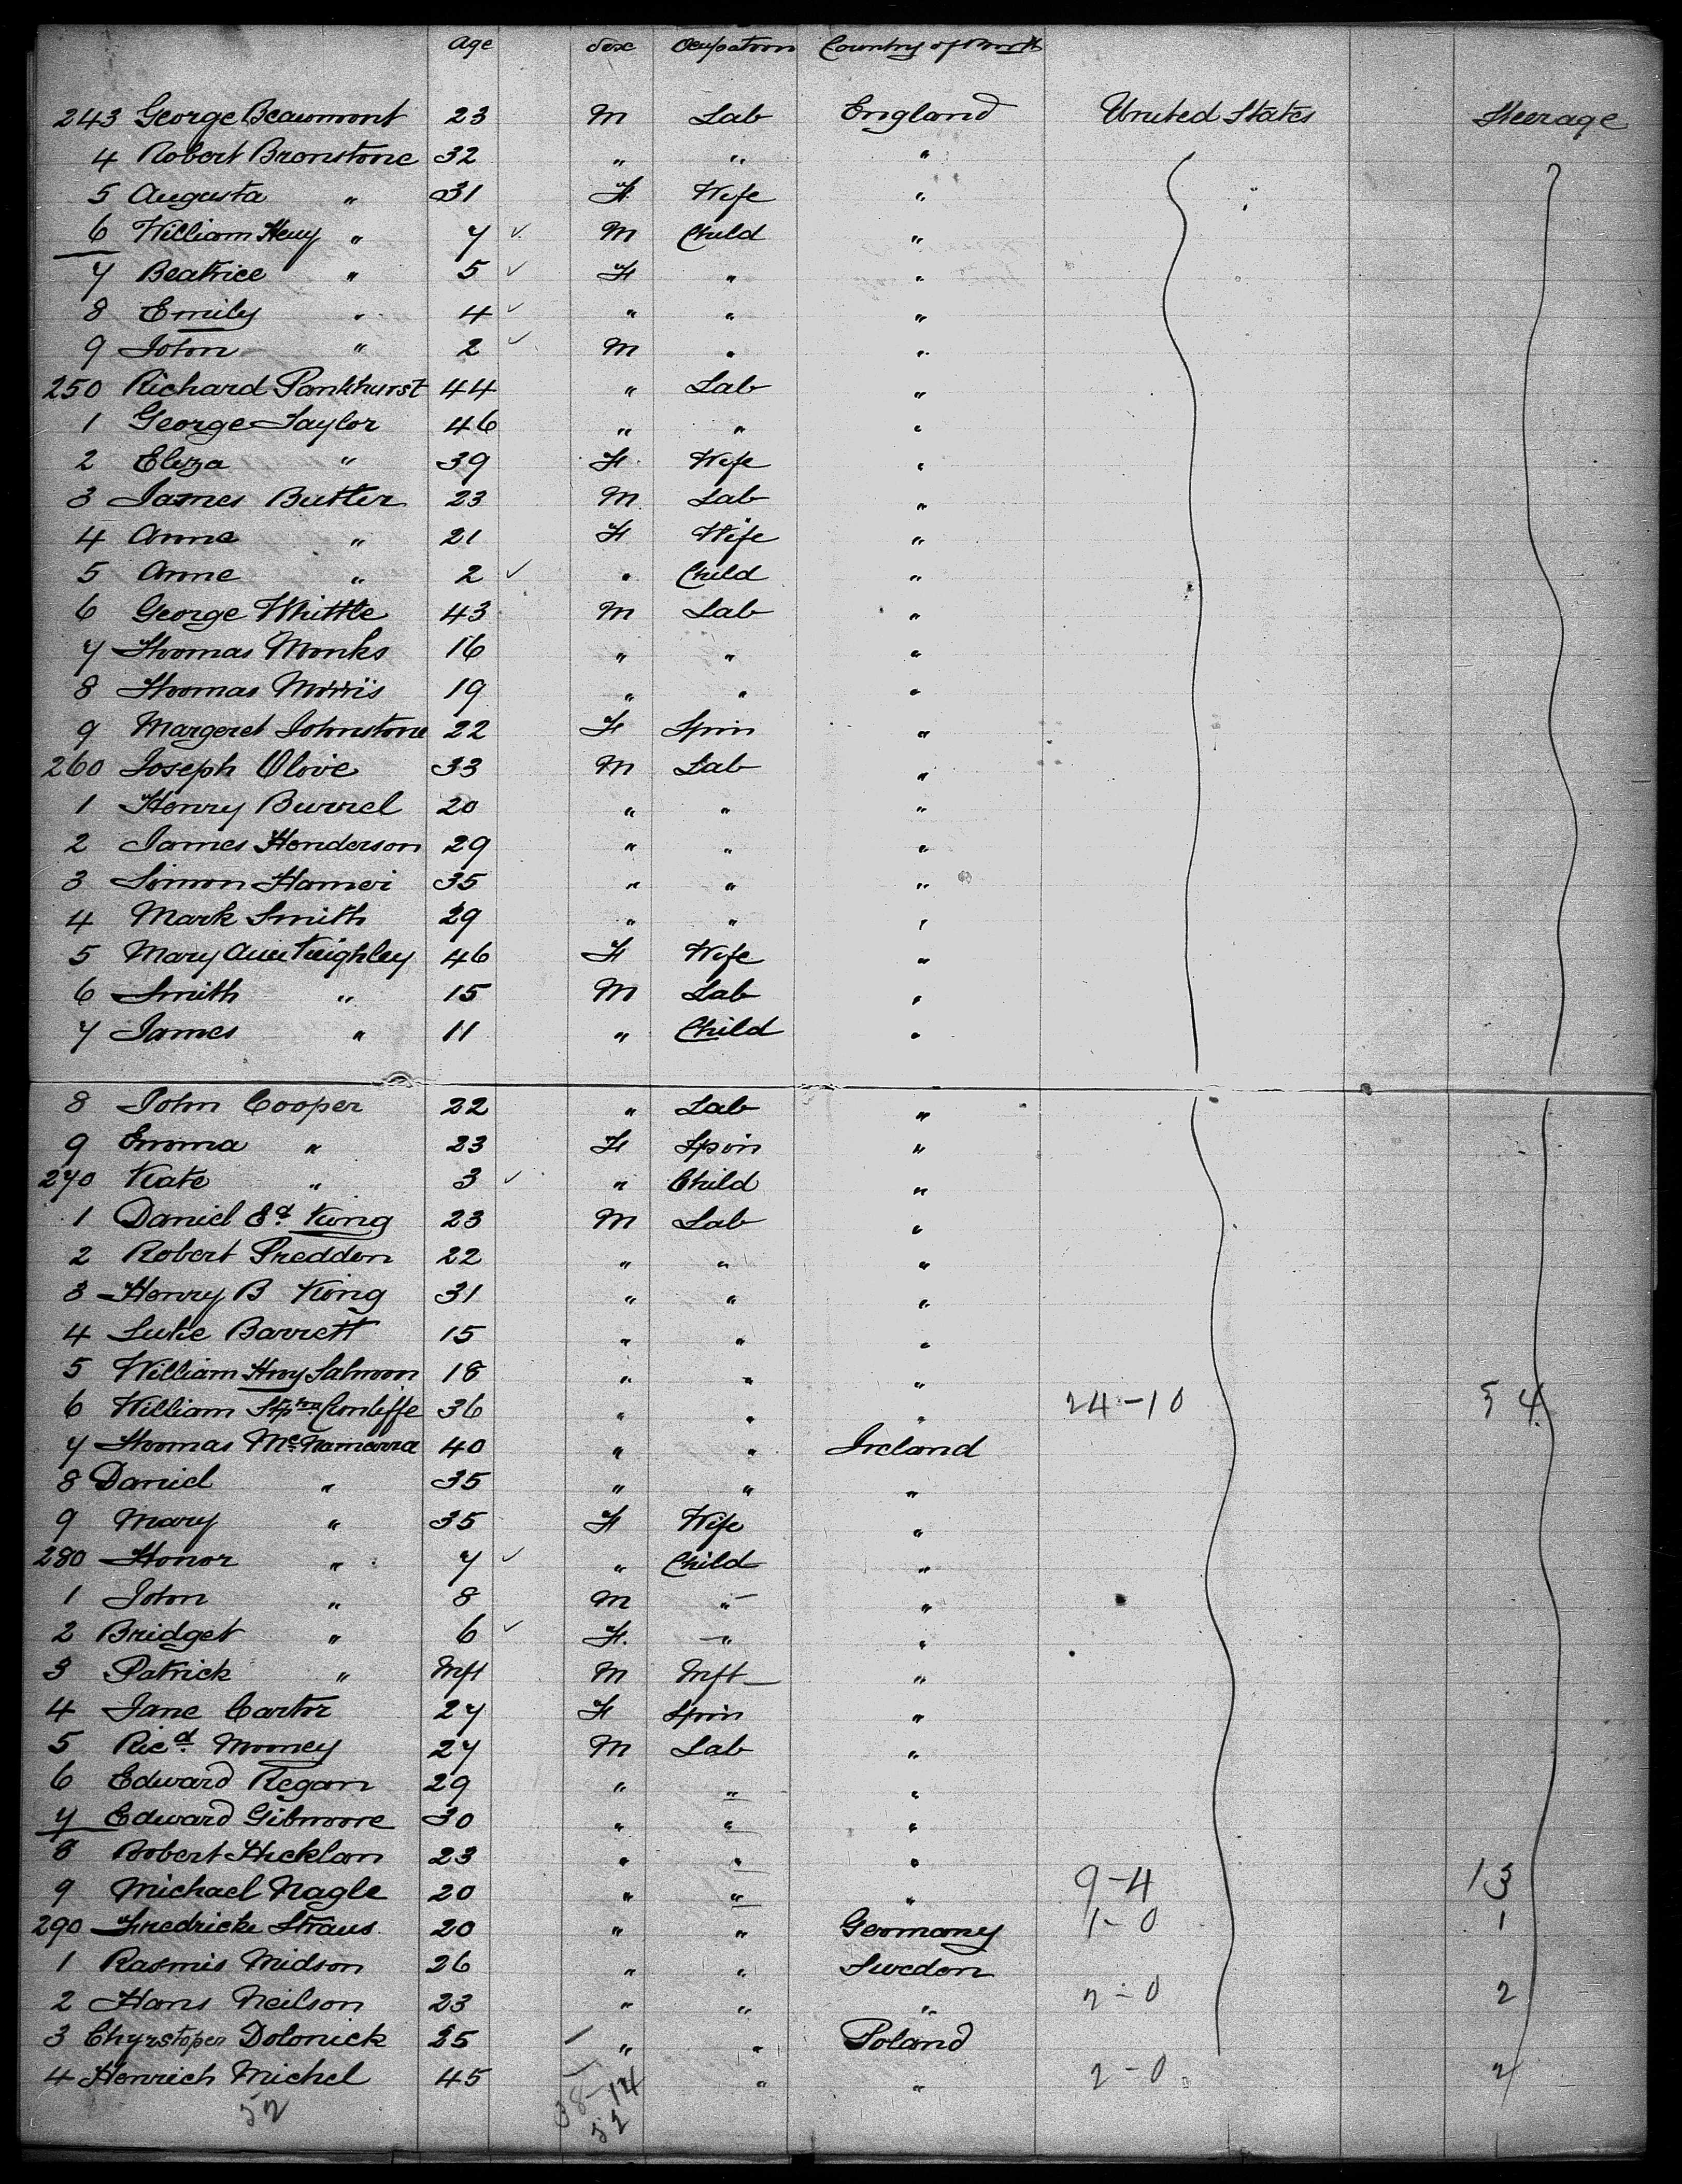 Age Sex Ocupation Country of Birth
243 George Beaumont 23 M Lab England United States Steerage
4 Robert Branstone 32 " " "
5 Augusta " 31 F Wife "
6 William Heny " 7 ✓ M Child "
7 Beatrice " 5 ✓ F " "
8 Emily " 4 ✓ " " "
9 John " 2 ✓ M " "
250 Richard Pankhurst 44 " Lab "
1 George Taylor 46 " " "
2 Eliza " 39 F Wife "
3 James Butler 23 M Lab "
4 Anne " 21 F Wife "
5 Anne " 2 ✓ " Child "
6 George Whittle 43 M Lab "
7 Thomas Monks 16 " " "
8 Thomas Morris 19 " " "
9 Margeret Johnstone 22 F Spin "
260 Joseph Olive 33 M Lab "
1 Henry Burrel 20 " " "
2 James Henderson 29 " " "
3 Simon Hamer 35 " " "
4 Mark Smith 29 " " "
5 Mary Ann Keighley 46 F Wife "
6 Smith " 15 M Lab "
7 James " 11 " Child "
8 John Cooper 22 " Lab "
9 Emma " 23 F Spin "
270 Kate " 3 ✓ " Child "
1 Daniel Ed King 23 M Lab "
2 Robert Preddon 22 " " "
3 Henry B King 31 " " "
4 Luke Barrett 15 " " "
5 William Hny Salmon 18 " " "
6 William Cunliffe 36 " " " 24-10 34
7 Thomas McNamarra 40 " " Ireland
8 Daniel " 35 " " "
9 Mary " 35 F Wife "
280 Honor " 7 ✓ " Child "
1 John " 8 M " "
2 Bridget " 6 ✓ F. " "
3 Patrick " Inft M Inft "
4 Jane Carter 27 F Spin "
5 Ricd Mooney 27 M Lab "
6 Edward Regan 29 " " "
7 Edward Gilmoore 30 " " "
8 Robert Hicklan 23 " " "
9 Michael Nagle 20 " " " 9-4 13
290 Fredricke Straus 20 " " Germany 1-0 1
1 Rasmis Midson 26 " " Sweden
2 Hans Neilson 23 " " " 2-0 2
3 Chyrstoper Dolonick 25 " " Poland
4 Henrich Michel 45 " " 2-0 2
52 38-14
52